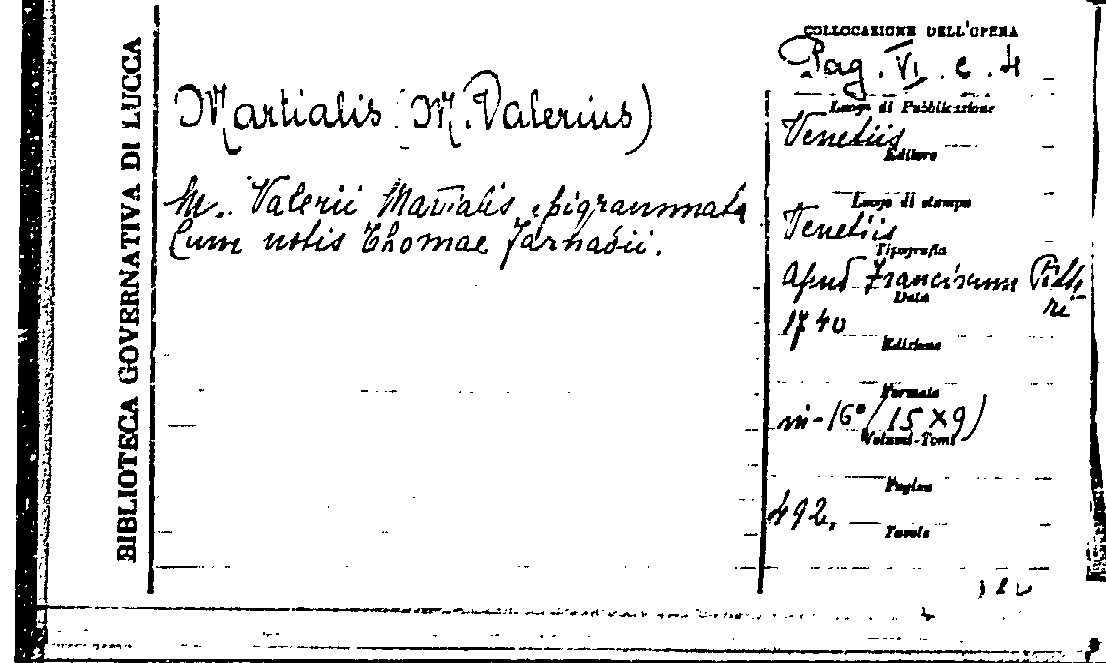 BIBLIOTECA GOVERNATIVA DI LUCCA
Martialis (M. Valerius)
M. Valerii Martialis epigrammata
Cum notis Thomae Farnabii.
COLLOCAZIONE DELL'OPERA
Pag. VI. c. 4
Luogo di Pubblicazione
Venetiis
Editore
Luogo di stampa
Venetiis
Tipografia
Apud Franciscum Pitte
ri
Data
1740
Edizione
Formato
in-16° (15 X 9)
Volumi-Tomi
Pagine
492.
Tavole